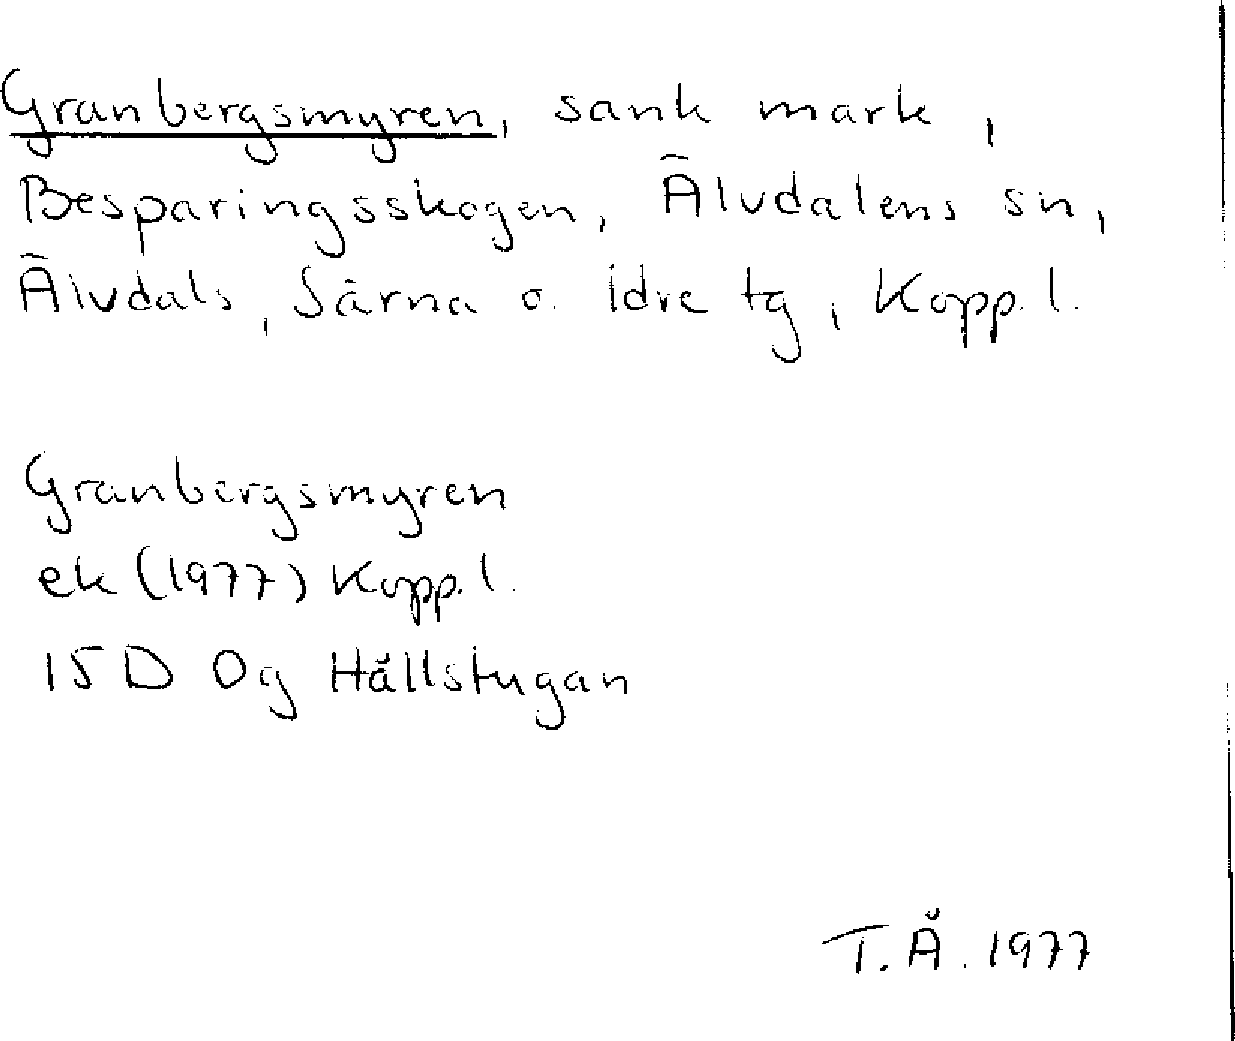 Granbergsmyren, sank mark,
Besparingsskogen, Älvdalens sn,
Älvdals, Särna o. Idre tg, Kopp. l.
Granbergsmyren
ek (1977) Kopp. l.
15 D 0g Hållstugan
T.Å. 1977